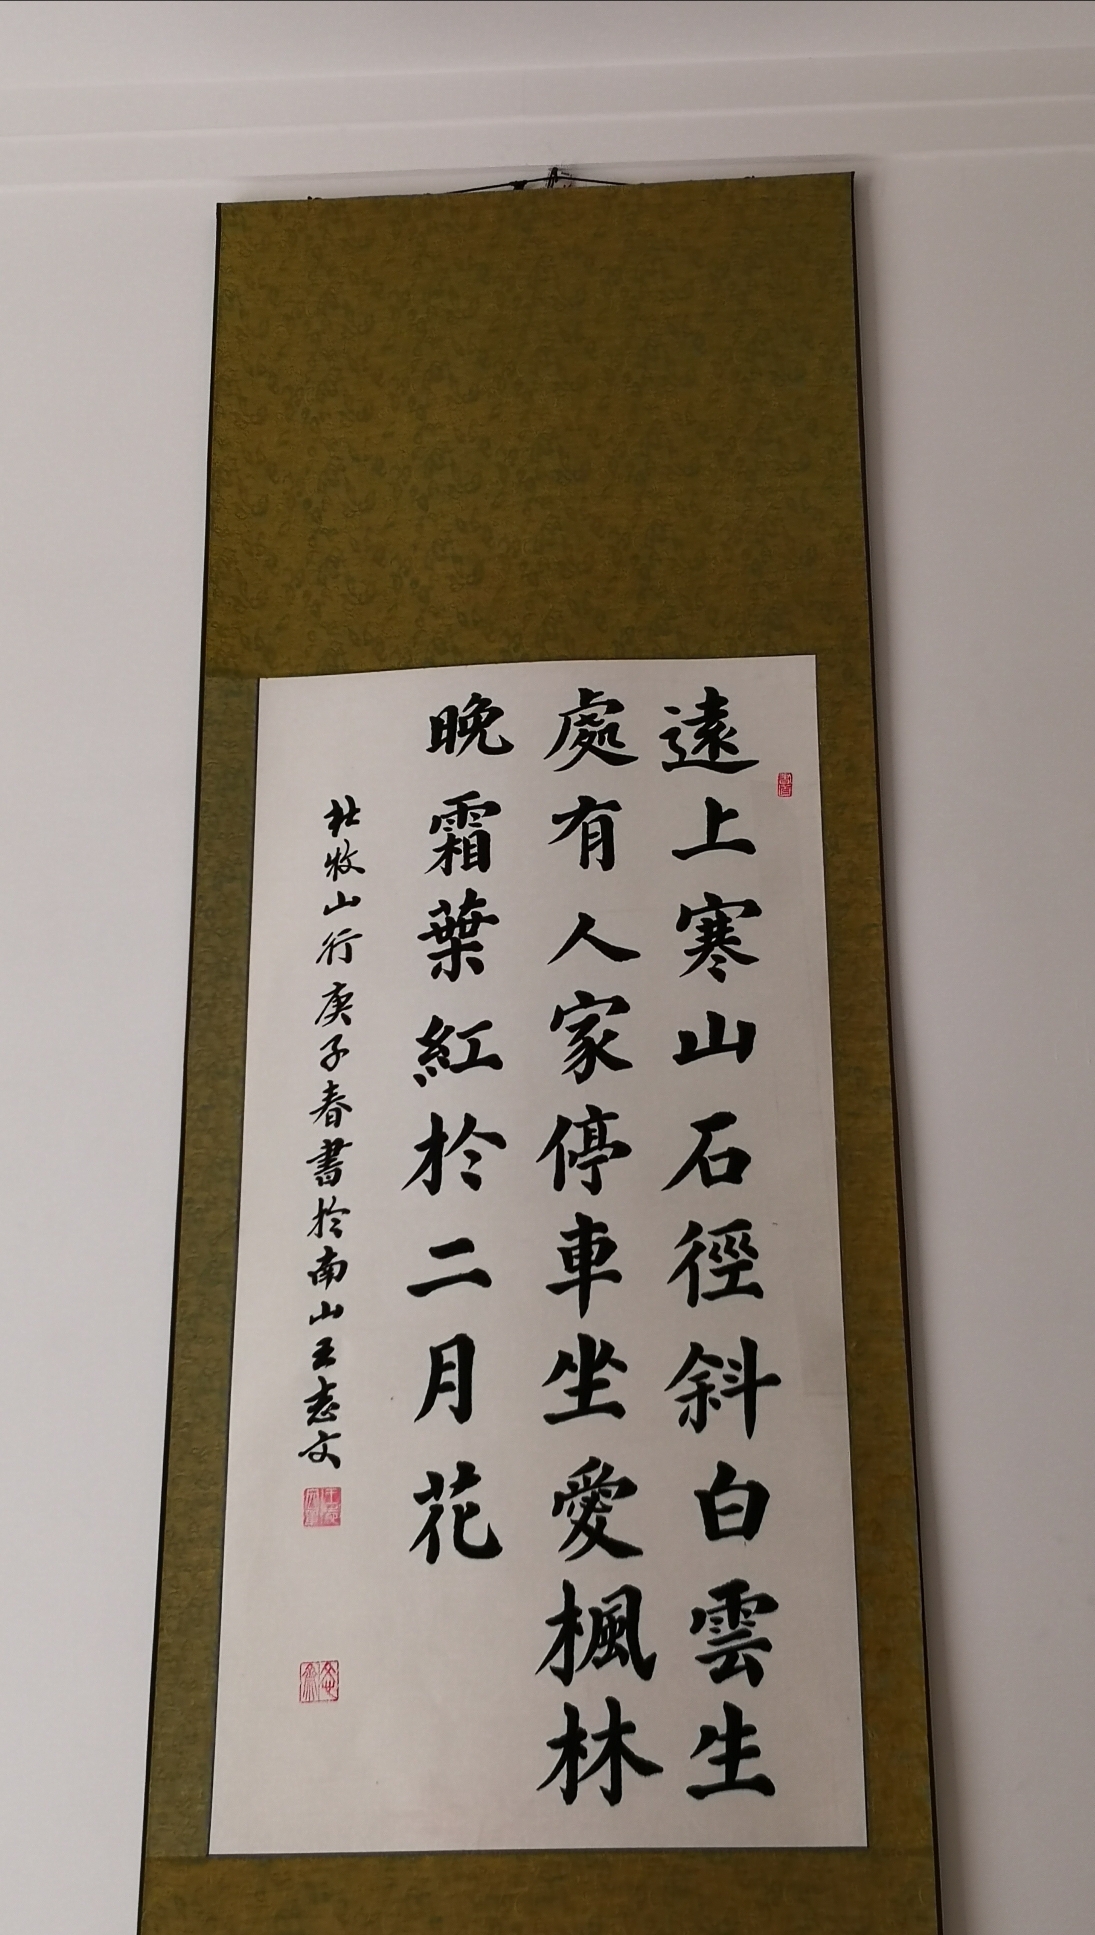 遠上寒山石徑斜白雲生
處有人家停車坐愛楓林
晚霜葉紅於二月花
杜牧山行庚子春書於南山王志文